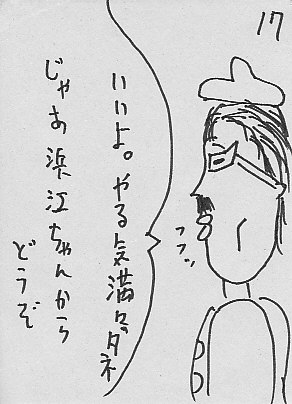 17
いいよ。やる気満々だネ
じゃあ浜江ちゃんから
どうぞ
フフッ